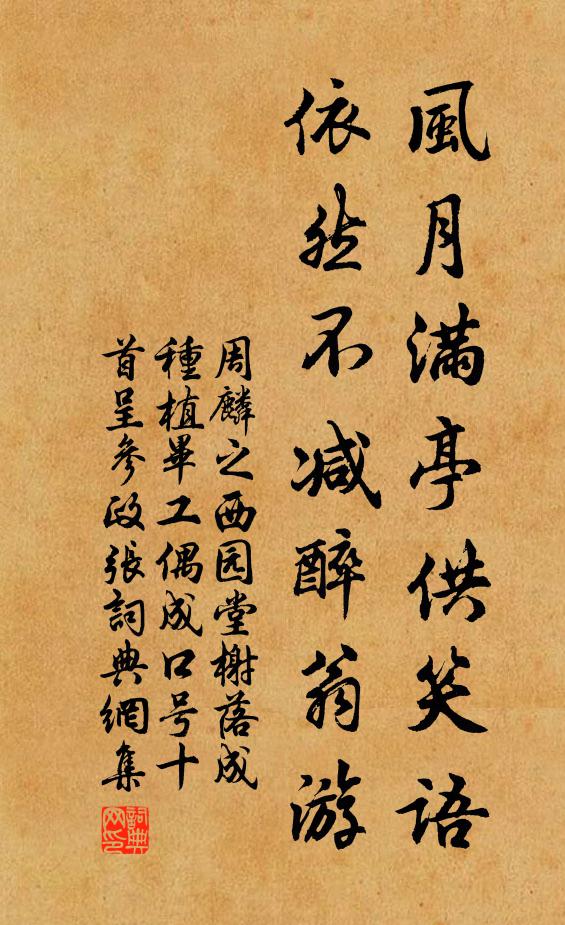 風月满亭供笑語
依然不减醉翁游
周麟之西园堂榭落成
種植畢工偶成口号十
首呈參政張詞典網集
詞典网印